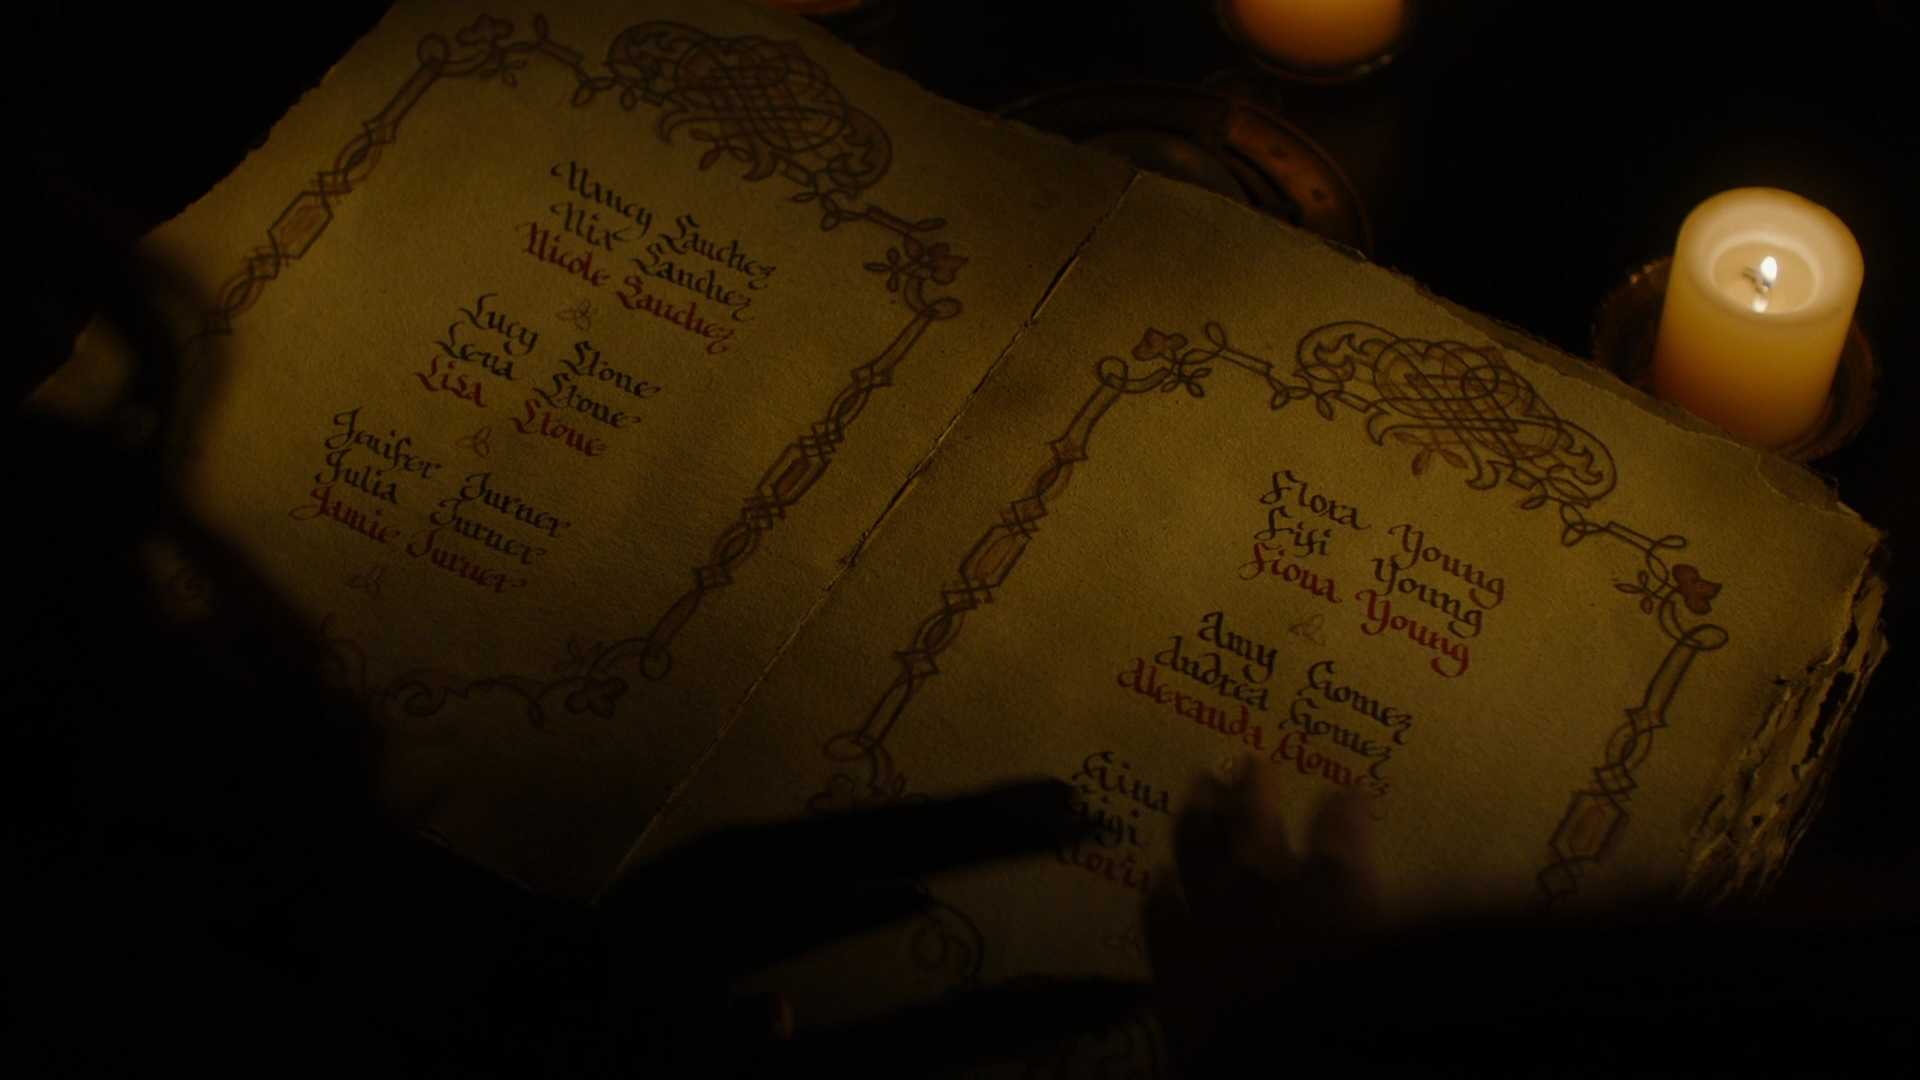 Nancy Sanchez
Nix Sanchez
Nicole Sanchez
Lucy Stone
Lena Stone
Lisa Stone
Jenifer Turner
Julia Turner
Jamie Turner
Flora Young
Fifi Young
Fiona Young
Amy Gomez
Andrea Gomez
Alexanda Gomez
Gina